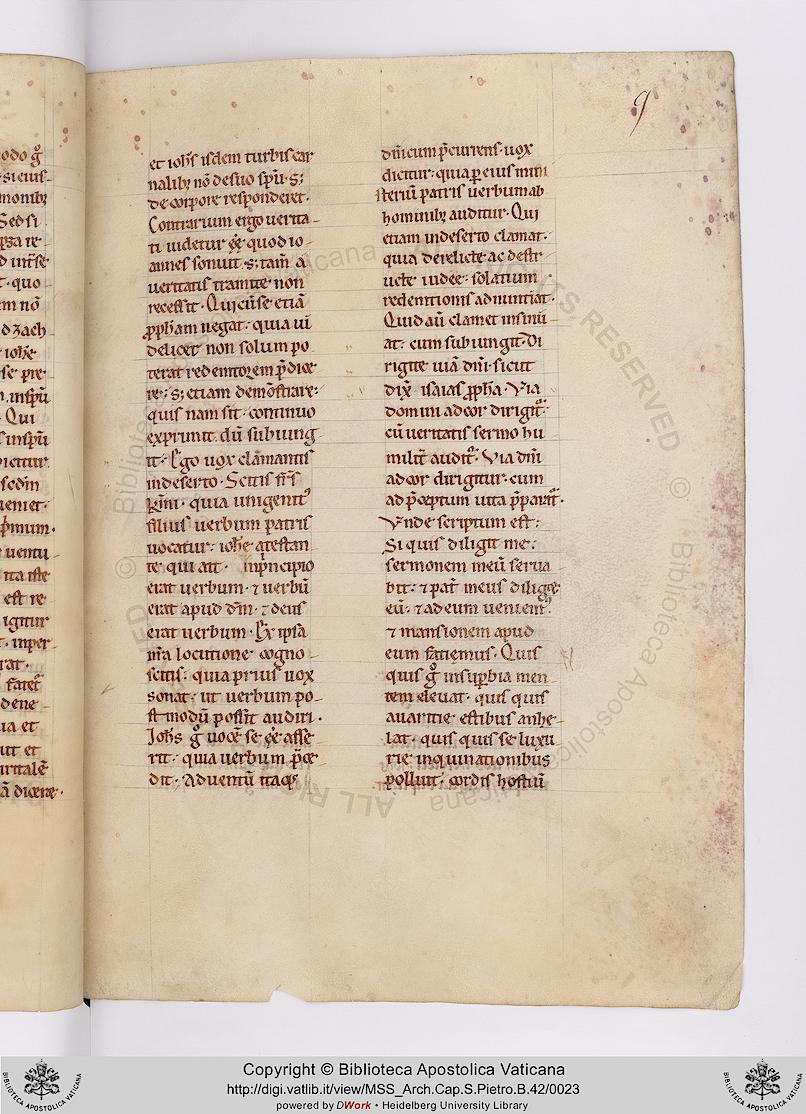 9
odo g̊
si eius
monibꝫ
Sed si
re
d
quo
em nō
d zach
iohe
se pre
inspū
Qui
inspū
dicitur
sedm
ueniet
p̄mum.
uentu
ita iste
est re
igitur
inper
rat.
fatet᷑
dene
ua et
uit et
uitalē
ā dicere.
et ioh̄s isdem turbis car
nalibꝫ nō de suo spū. sꝫ
de corpore responderet.
Contrarium ergo uerita
ti uidetur ēē quod io
annes sonuit. sꝫ tam̄ a
ueritatis tramite non
recessit. Qui cū se etiā
ꝓph̄am negat: quia ui
delicet non solum po
terat redemtorem p̄dice
re: sꝫ etiam demōstrare:
quis nam sit. continuo
exprimit dū subiung
it. Ego uox clamantis
in deserto. Scitis fr̄s
kmi. quia unigenitꝰ
filius uerbum patris
uocatur: ioh̄e attestan
te qui ait. In principio
erat uerbum. ⁊ uerbū
erat apud dm̄. ⁊ deus
erat uerbum. Ex ipsa
nr̄a locutione cogno
scitis: quia prius uox
sonat: ut uerbum po
st modū possit audiri.
Joh̄s g̊ uocē se ēē asse
rit: quia uerbum p̄ce
dit. Aduentū itaqꝫ
dn̄icum p̄currens. uox
dicitur: quia per eius mini
steriū patris uerbum ab
hominibꝫ auditur. Qui
etiam in deserto clamat.
quia derelicte ac desti
tute iudee: solatium
redemtionis adnuntiat.
Quid aū clamet insinu
at: cum subiungit. Di
rigite uiā dn̄i. sicut
dix̄ isaias ꝓph̄a. Via
domini ad cor dirigit᷑:
cū ueritatis sermo hu
milit᷑ audit᷑. Via dn̄i
ad cor dirigitur. cum
ad p̄ceptum uita p̄parat᷑.
Vnde scriptum est:
Si quis diligit me:
sermonem meū serua
bit: ⁊ pat᷑ meus diliget
eū: ⁊ ad eum uenientꝰ
⁊ mansionem apud
eum fatiemus. Quis
quis g̊ in suꝑbia men
tem eleuat. quis quis
auaritie estibus anhe
lat. quis quis se luxu
rie inquinationibus
polluit. cordis hostiū
Copyright © Biblioteca Apostolica Vaticana
http://digi.vatlib.it/view/MSS_Arch.Cap.S.Pietro.B.42/0023
powered by DWork • Heidelberg University Library